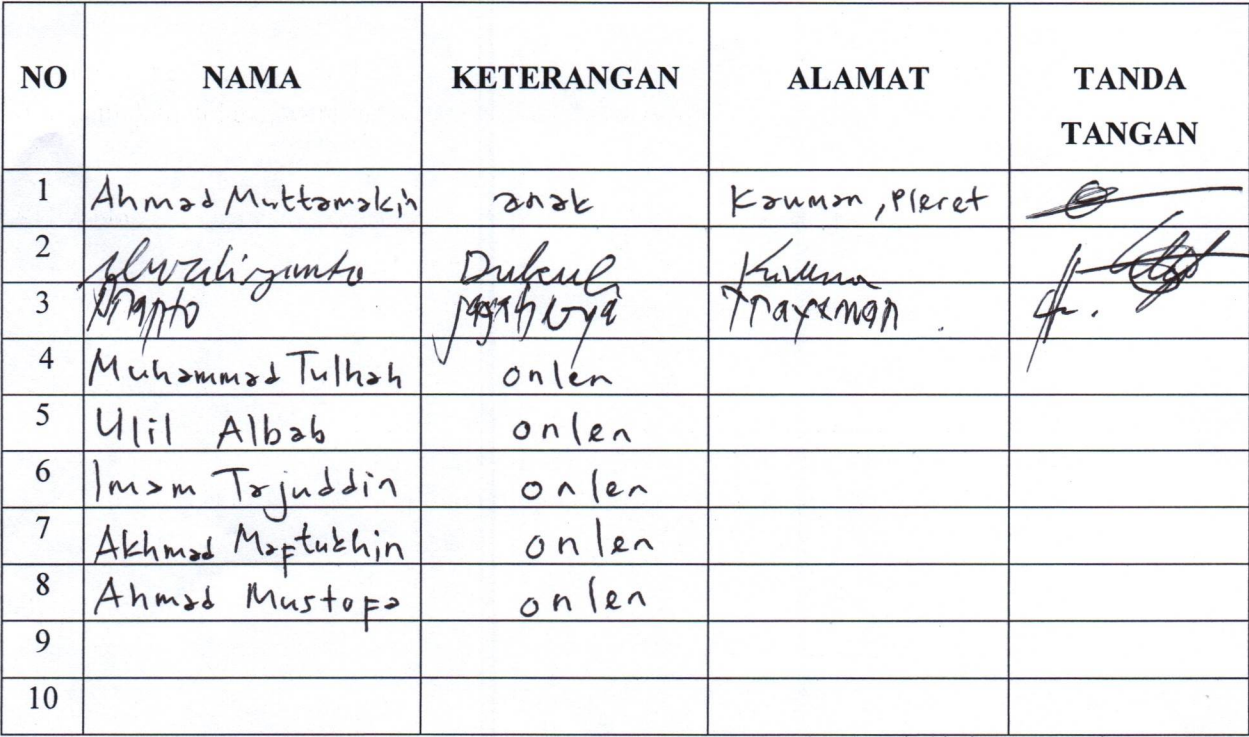 NO NAMA KETERANGAN ALAMAT TANDA TANGAN
1 Ahmad Muttamakin anak Kauman, Pleret
2 Dukuh
3
4 Muhammad Tulhah onlen
5 Ulil Albab onlen
6 Imam Tajuddin onlen
7 Akhmad Maftukhin onlen
8 Ahmad Mustofa onlen
9
10